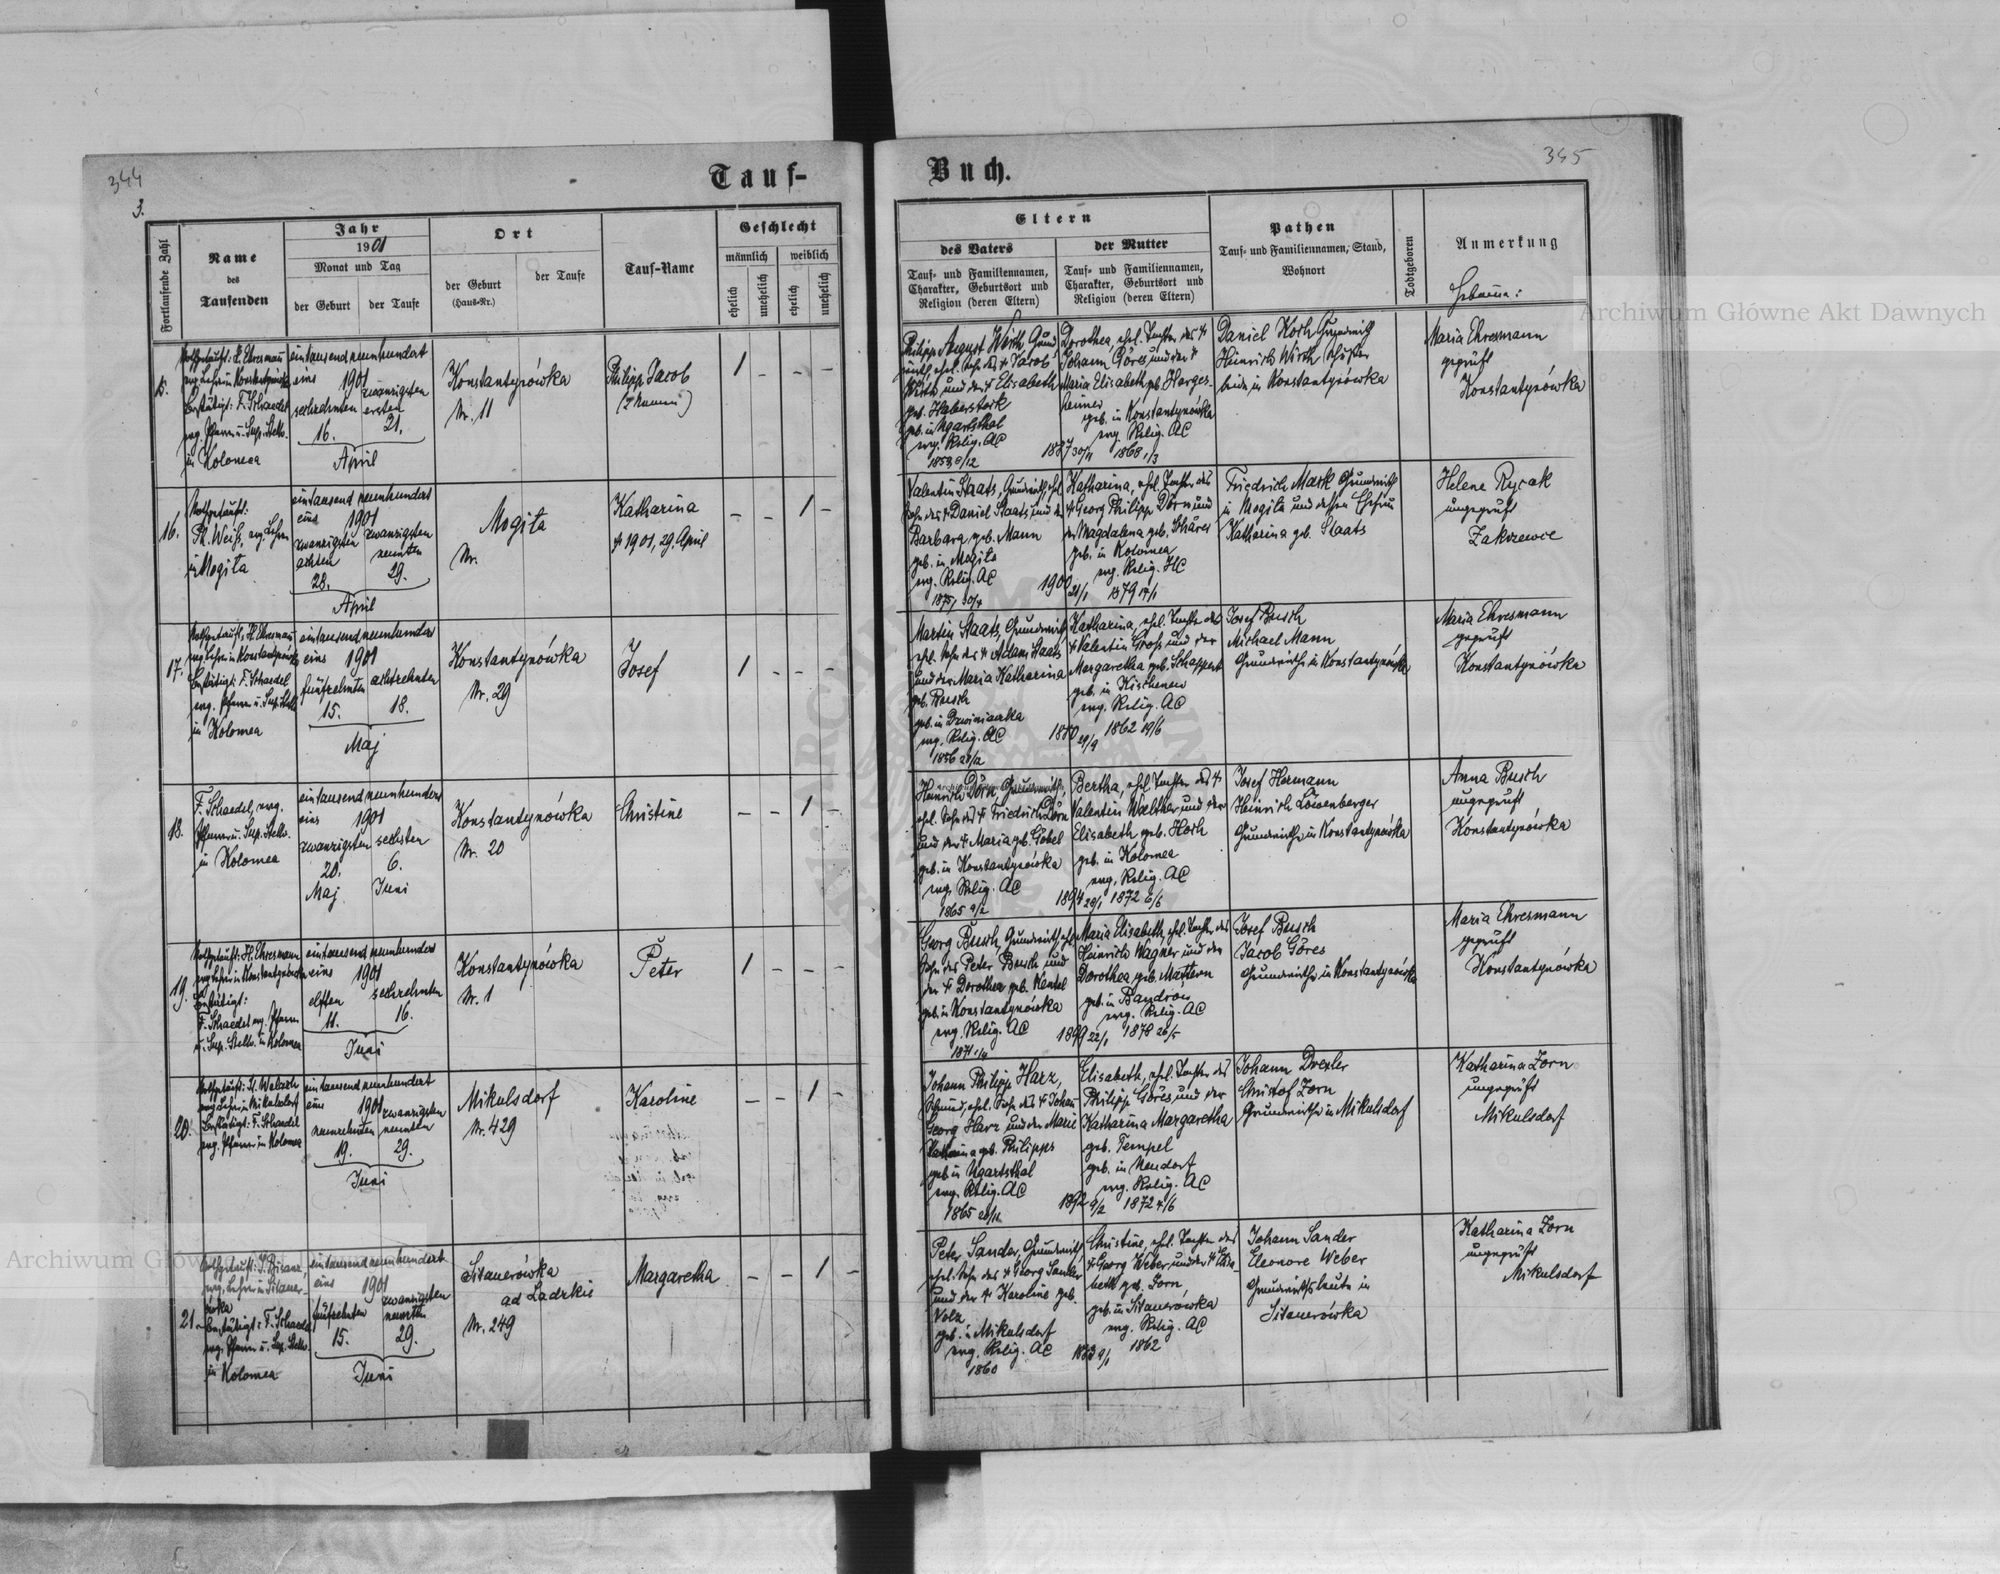 344
3.
Tauf-
Fortlaufende Zahl
Name
des
Taufenden
Jahr
1901
Monat und Tag
der Geburt
der Taufe
Ort
der Geburt
(Haus-Nr.)
der Taufe
Tauf-Name
Geschlecht
männlich
weiblich
ehelich
unehelich
ehelich
unehelich
15.
Nothgetauft: H. Ehresmann
evg. Lehrer in Konstantynówka
Bestätigt: F. Schaedel
evg. Pfarrer u. Sup. Stellv.
in Kolomea
eintausend neunhundert
eins 1901
sechzehnten
16.
zwanzigsten
ersten
21.
April
Konstantynówka
Nr. 11
Philipp Jacob
1 - - -
16.
Nothgetauft:
Ph. Weiß, evg. Lehrer
in Mogiła
eintausend neunhundert
eins 1901
zwanzigsten
achten
28.
zwanzigsten
neunten
29.
April
Mogiła
Nr.
Katharina
† 1901, 29. April
- - 1 -
17.
Nothgetauft: H. Ehresmann
evg. Lehrer in Konstantynówka
Bestätigt: F. Schaedel
evg. Pfarrer u. Sup. Stellv.
in Kolomea
eintausend neunhundert
eins 1901
fünfzehnten
15.
achtzehnten
18.
Maj
Konstantynówka
Nr. 29
Josef
1 - - -
18.
F. Schaedel, evg.
Pfarrer u. Sup. Stellv.
in Kolomea
eintausend neunhundert
eins 1901
zwanzigsten
20.
Maj
sechsten
6.
Juni
Konstantynówka
Nr. 20
Christine
- - 1 -
19.
Nothgetauft: H. Ehresmann
evg. Lehrer in Konstantynówka
Bestätigt:
F. Schaedel evg. Pfarrer
u. Sup. Stellv. in Kolomea
eintausend neunhundert
eins 1901
elften
11.
sechzehnten
16.
Juni
Konstantynówka
Nr. 1
Peter
1 - - -
20.
evg. Lehrer in Mikulsdorf
Bestätigt: F. Schaedel
evg. Pfarrer in Kolomea
eintausend neunhundert
eins 1901
neunzehnten
19.
zwanzigsten
neunten
29.
Juni
Mikulsdorf
Nr. 429
Karoline
- - 1 -
21.
evg. Lehrer in Sitauerówka
Bestätigt: F. Schaedel
evg. Pfarrer u. Sup. Stellv.
in Kolomea
eintausend neunhundert
eins 1901
fünfzehnten
15.
zwanzigsten
neunten
29.
Juni
Sitauerówka
ad Ladzkie
Nr. 249
Margaretha
- - 1 -
Buch.
345
Eltern
des Vaters
Tauf- und Familiennamen,
Charakter, Geburtsort und
Religion (deren Eltern)
der Mutter
Tauf- und Familiennamen,
Charakter, Geburtsort und
Religion (deren Eltern)
Pathen
Tauf- und Familiennamen, Stand,
Wohnort
Todtgeboren
Anmerkung
Hebamme:
Philipp August Wirth, Grund-
wirth, ehel. Sohn des † Jacob
Wirth und der † Elisabeth
geb. Haberstock
geb. in Ugartsthal
evg. Relig. AC
Dorothea, ehel. Tochter des †
Johann Göres und der †
Maria Elisabeth geb. Harges-
heimer
geb. in Konstantynówka
evg. Relig. AC
1868 1/3
Daniel Koch Grundwirth
Heinrich Wirth
beide in Konstantynówka
Maria Ehresmann
geprüft
Konstantynówka
Valentin Staats, Grundwirth, ehel.
Sohn des † Daniel Staats, und der
Barbara, geb. Mann
geb. in Mogiła
evg. Relig. AC
Katharina, ehel. Tochter des
† Georg Philipp Dörn und
der Magdalena geb. Schäres
geb. in Kolomea
evg. Relig. HC
1900
Friedrich Mark Grundwirth
in Mogiła und dessen Ehefrau
Katharina geb. Staats
Helene Rycak
ungeprüft
Zakrzewce
Martin Staats, Grundwirth
ehel. Sohn des † Adam Staats
und der Maria Katharina
geb. Busch
geb. in Dzwiniaczka
evg. Relig. AC
Katharina, ehel. Tochter des
† Valentin Groß und der
Margaretha geb. Schappert
geb. in Kischenew
evg. Relig. AC
1862 19/6
Josef Busch
Michael Mann
Grundwirthe in Konstantynówka
Maria Ehresmann
geprüft
Konstantynówka
Heinrich Dörn, Grundwirth,
ehel. Sohn des † Friedrich Dörn
und der † Maria geb. Göbel
geb. in Konstantynówka
evg. Relig. AC
1865 9/2
Bertha, ehel. Tochter des †
Valentin Walther und der
Elisabeth geb. Hoch
geb. in Kolomea
evg. Relig. AC
1894 28/1 1872 6/6
Josef Hermann
Heinrich Löwenberger
Grundwirthe in Konstantynówka
Anna Busch
ungeprüft
Konstantynówka
Georg Busch, Grundwirth, ehel.
Sohn des Peter Busch und
der † Dorothea geb. Kentel
geb. in Konstantynówka
evg. Relig. AC
Maria Elisabeth, ehel. Tochter des
Heinrich Wagner und der
Dorothea geb. Mattern
geb. in Bandrow
evg. Relig. AC
1899 22/1 1878 26/5
Josef Busch
Jacob Göres
Grundwirthe in Konstantynówka
Maria Ehresmann
geprüft
Konstantynówka
Johann Philipp Harz,
Schmied, ehel. Sohn des † Johann
Georg Harz und der Marie
Katharina geb. Philipps
geb. in Ugartsthal
evg. Relig. AC
Elisabeth, ehel. Tochter des
Philipp Göres, und der
Katharina Margaretha
geb. Tempel
geb. in Neudorf
evg. Relig. AC
1892 9/2 1872 4/6
Johann Drexler
Christof Zorn
Grundwirthe in Mikulsdorf
Katharina Zorn
ungeprüft
Mikulsdorf
Peter Sander, Grundwirth
ehel. Sohn des † Georg Sander
und der † Karoline geb.
Volz
geb. in Mikulsdorf
evg. Relig. AC
1860
Christine, ehel. Tochter des
† Georg Weber und der † Elisa-
beth geb. Zorn
geb. in Sitauerówka
evg. Relig. AC
1862
Johann Sander
Eleonore Weber
Grundwirthsleute in
Sitauerówka
Katharina Zorn
ungeprüft
Mikulsdorf
Archiwum Główne Akt Dawnych
Archiwum Główne Akt Dawnych